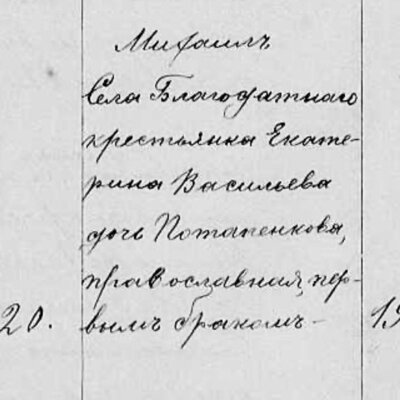 Михаилъ
Села Благодатнаго
крестьянка Екате-
рина Васильева
дочь Потапенкова,
православная, пер-
20. вымъ бракомъ- 19